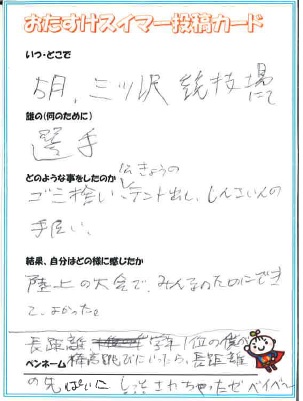 おたすけスイマー投稿カード
いつ・どこで
5月、三ツ沢競技場にて
誰の(何のために)
選手
どのような事をしたのか
ゴミ拾い、テント出し、しんさいんの
手伝い、
結果、自分はどの様に感じたか
陸上の大会で、みんなのためにでき
て、よかった。
長距離、学年1位の僕が
ペンネーム 棒高跳びにいたら、長距離
の先ぱいに されちゃったゼベイベー